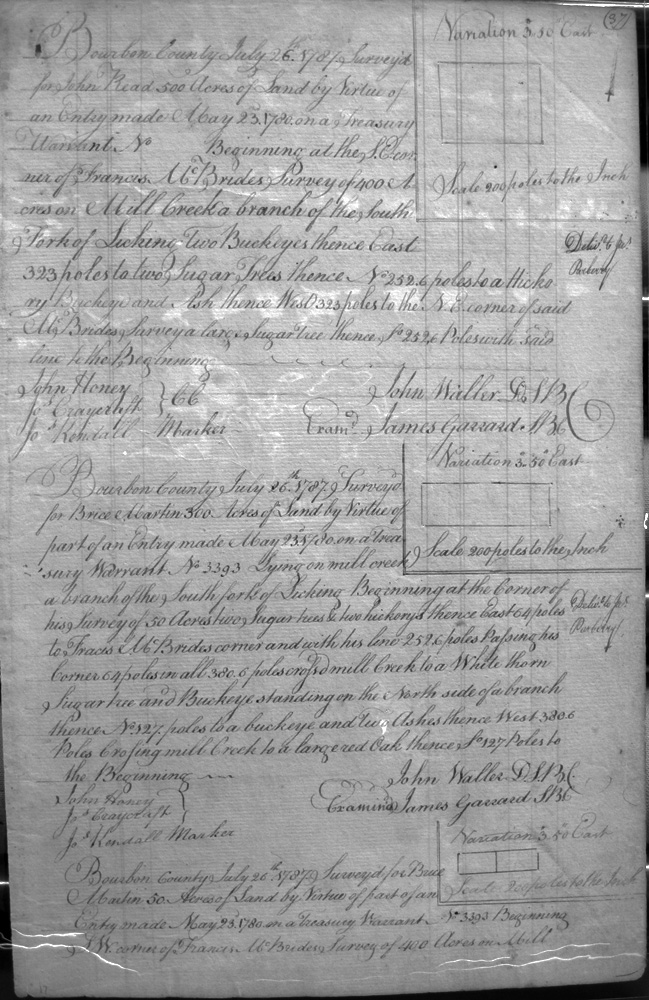 (37)
Variation 3.50 East
Scale 200 poles to the Inch
Bourbon County July 26th 1787 Survey'd
for John Read 500 Acres of Land by Virtue of
an Entry made May 23.1780. on a Treasury
Warrant No Beginning at the S.E cor
ner of Francis McBrides Survey of 400 A
cres on Mill Creek a branch of the South
Fork of Licking Two Buckeyes thence East
323 poles to two Sugar Trees thence No 252.6 poles to a Hicko
ry Buckeye and Ash thence West 323 poles to the N.E corner of said
McBrides Survey a large Sugar tree thence So 252.6 Poles with said
line to the Beginning
Deliv.d to Jas.
John Honey
Jos Craycraft } CCs
Jos Kendall Marker
John Waller D.S.B.C
Exam.d James Garrard S.B.C
Variation 3.50 East
Scale 200 poles to the Inch
Bourbon County July 26.th 1787 Survey'd
for Brice Martin 300. Acres of Land by Virtue of
part of an Entry made May 23.1780. on a trea
sury Warrant No 3393 Lying on mill creek
a branch of the South fork of Licking Beginning at the Corner of
his Survey of 50 Acres two Sugar trees & two hickerys thence East 64 poles
to Fracis McBrides corner and with his line 252.6 poles Passing his
Corner 64 poles in all 380.6 poles crossd mill Creek to a White thorn
Sugar tree and Buckeye standing on the North side of a branch
thence No 127 poles to a buckeye and two Ashes thence West 380.6
Poles Crossing mill Creek to a large red Oak thence So 127 Poles to
the Beginning
Deliv.d to Jas.
John Honey
Jos Craycraft }
Jos Kendall Marker
John Waller D.S.B.C.
Examind James Garrard S.B.C
Variation 3.50 East
Scale 200 poles to the Inch
Bourbon County July 26th 1787 Survey'd for Brice
Martin 50. Acres of Land by Virtue of part of an
Entry made May 23.1780. on a Treasury Warrant No 3393 Beginning
S W corner of Francis McBrides Survey of 400 Acres on Mill